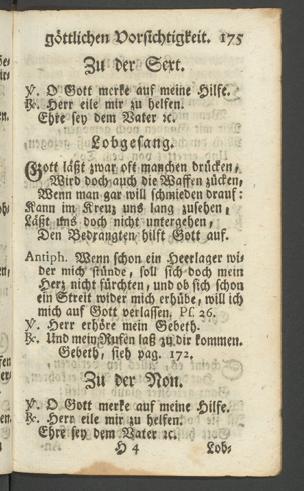 göttlichen Vorsichtigkeit. 175
Zu der Sext.
℣. O Gott merke auf meine Hilfe.
℟. Herr eile mir zu helfen.
Ehre sey dem Vater ꝛc.
Lobgesang.
Gott läßt zwar oft manchen drücken,
Wird doch auch die Waffen zücken,
Wenn man gar will schmieden drauf:
Kann im Kreuz uns lang zusehen,
Läßt uns doch nicht untergehen,
Den Bedrangten hilft Gott auf.
Antiph. Wenn schon ein Heerlager wi-
der mich stünde, soll sich doch mein
Herz nicht fürchten, und ob sich schon
ein Streit wider mich erhübe, will ich
mich auf Gott verlassen. Ps. 26.
℣. Herr erhöre mein Gebeth.
℟. Und mein Rufen laß zu dir kommen.
Gebeth, sieh pag. 172.
Zu der Non.
℣. O Gott merke auf meine Hilfe.
℟. Herr eile mir zu helfen.
Ehre sey dem Vater ꝛc.
H 4 Lob-